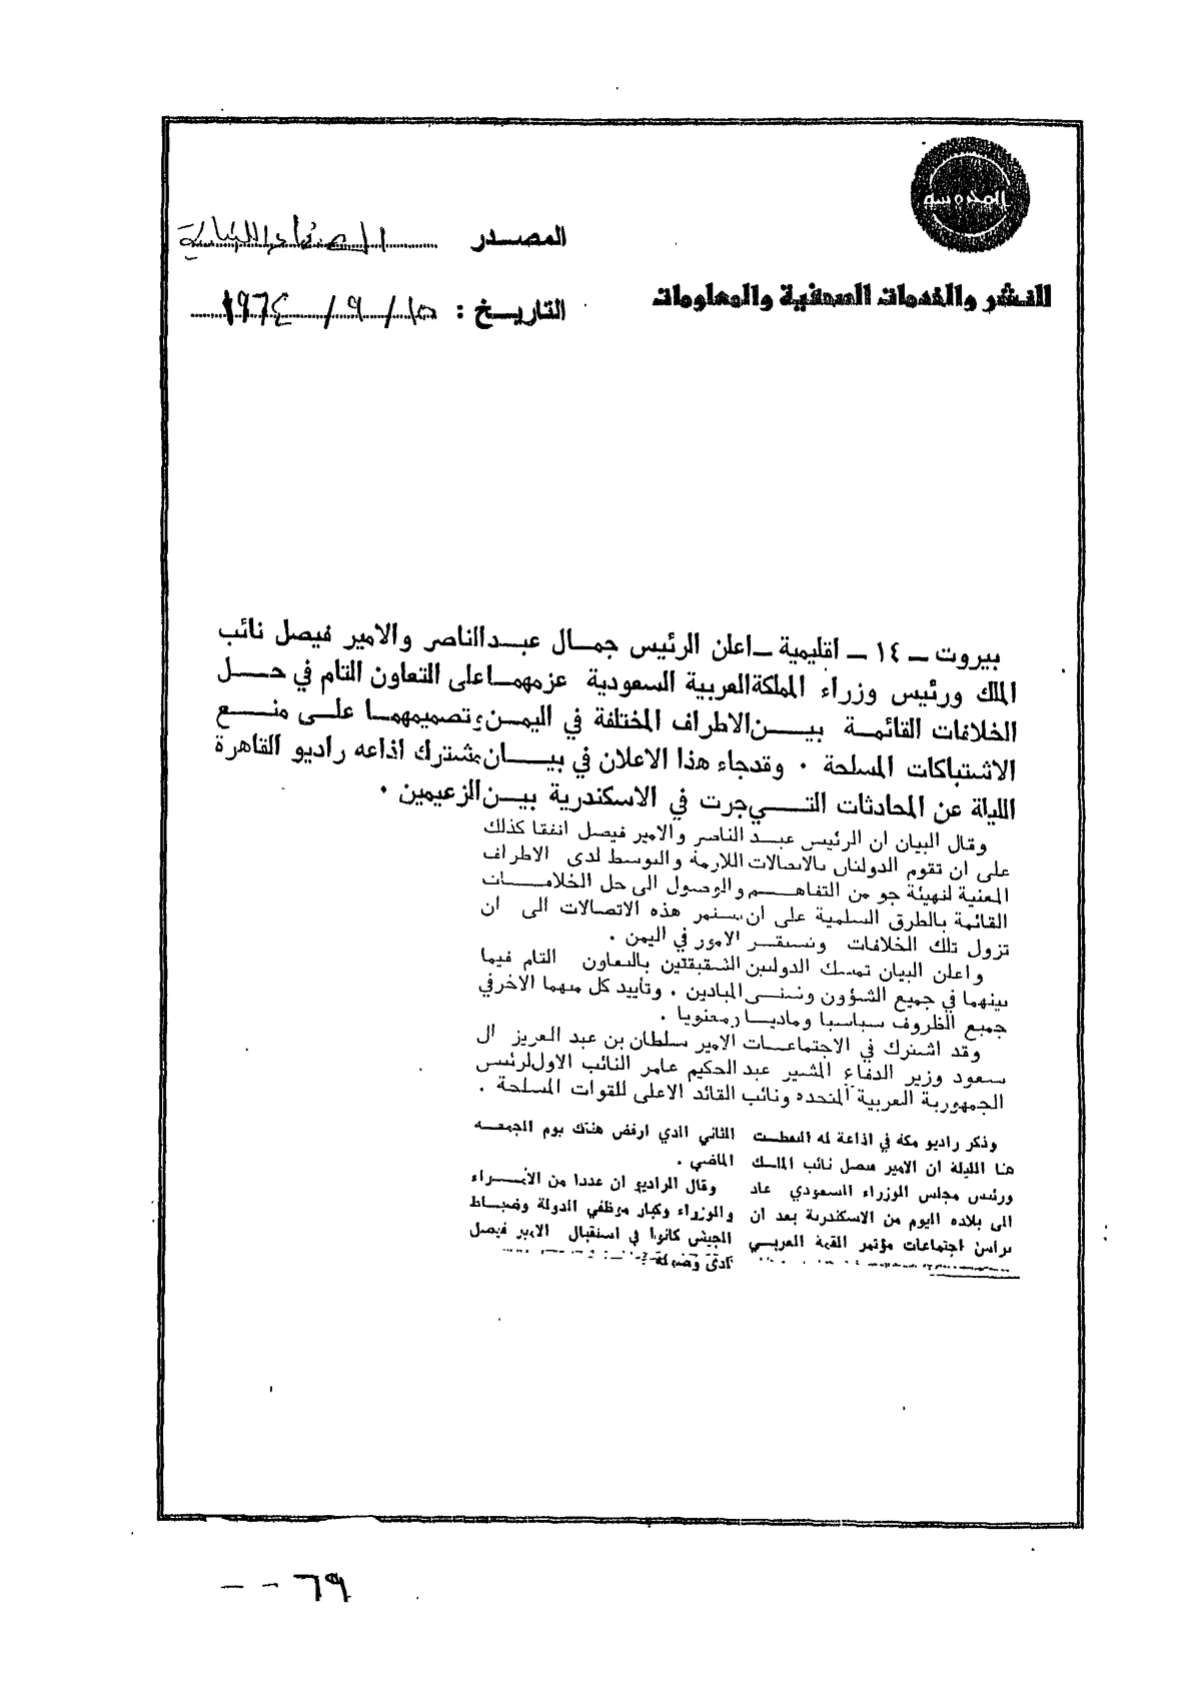 المحروسة
للنشر والخدمات الصحفية والمعلومات
المصدر
التاريخ : ١٥ / ٩ / ١٩٦٤
بيروت – ١٤ – اقليمية – اعلن الرئيس جمال عبد الناصر والامير فيصل نائب
الملك ورئيس وزراء المملكة العربية السعودية عزمهما على التعاون التام في حل
الخلافات القائمة بين الاطراف المختلفة في اليمن وتصميمهما على منع
الاشتباكات المسلحة . وقد جاء هذا الاعلان في بيان مشترك اذاعه راديو القاهرة
الليلة عن المحادثات التي جرت في الاسكندرية بين الزعيمين .
وقال البيان ان الرئيس عبد الناصر والامير فيصل اتفقا كذلك
على ان تقوم الدولتان بالاتصالات اللازمة والتوسط لدى الاطراف
المعنية لتهيئة جو من التفاهم والوصول الى حل الخلافات
القائمة بالطرق السلمية على ان تستمر هذه الاتصالات الى ان
تزول تلك الخلافات وتستقر الامور في اليمن .
واعلن البيان تمسك الدولتين الشقيقتين بالتعاون التام فيما
بينهما في جميع الشؤون وشتى الميادين . وتأييد كل منهما الاخر في
جميع الظروف سياسيا وماديا ومعنويا .
وقد اشترك في الاجتماعات الامير سلطان بن عبد العزيز ال
سعود وزير الدفاع المشير عبد الحكيم عامر النائب الاول لرئيس
الجمهورية العربية المتحدة ونائب القائد الاعلى للقوات المسلحة .
وذكر راديو مكة في اذاعة له التقطت
هنا الليلة ان الامير فيصل نائب الملك
ورئيس مجلس الوزراء السعودي عاد
الى بلاده اليوم من الاسكندرية بعد ان
تراس اجتماعات مؤتمر القمة العربي
الثاني الذي ارفض هناك يوم الجمعة
الماضي .
وقال الراديو ان عددا من الأمراء
والوزراء وكبار موظفي الدولة وضباط
الجيش كانوا في استقبال الامير فيصل
٦٩ - -